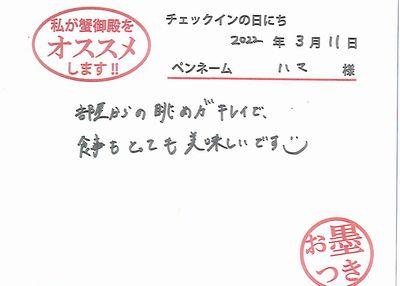 私が蟹御殿を
オススメ
します!!
チェックインの日にち
2022 年 3 月 11 日
ペンネーム ハマ 様
部屋からの眺めがキレイで、
食事もとても美味しいです
お墨
つき